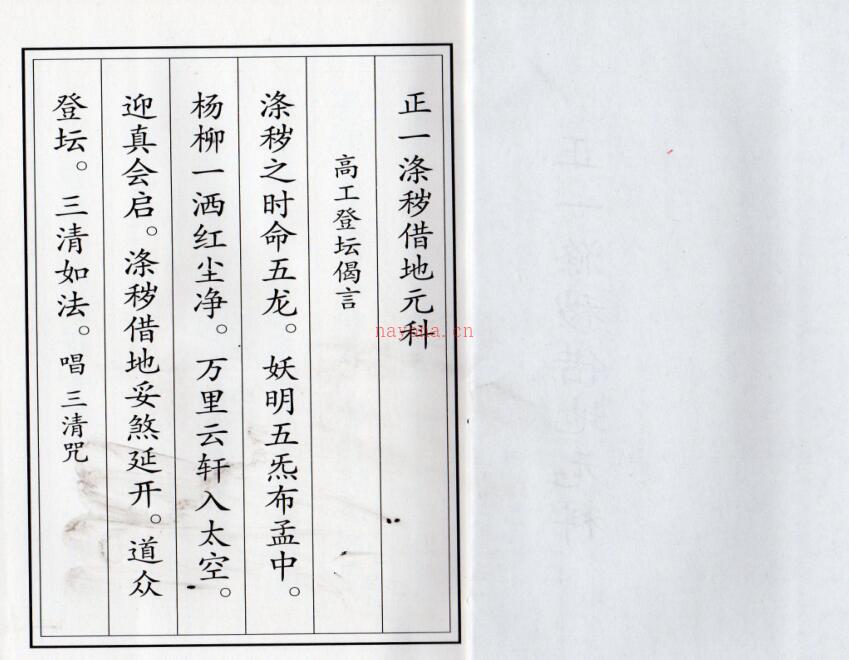 正一涤秽借地元科
高工登坛偈言
涤秽之时命五龙。妖明五炁布孟中。
杨柳一洒红尘净。万里云轩入太空。
迎真会启。涤秽借地妥煞延开。道众
登坛。三清如法。唱三清咒
nayona.cn